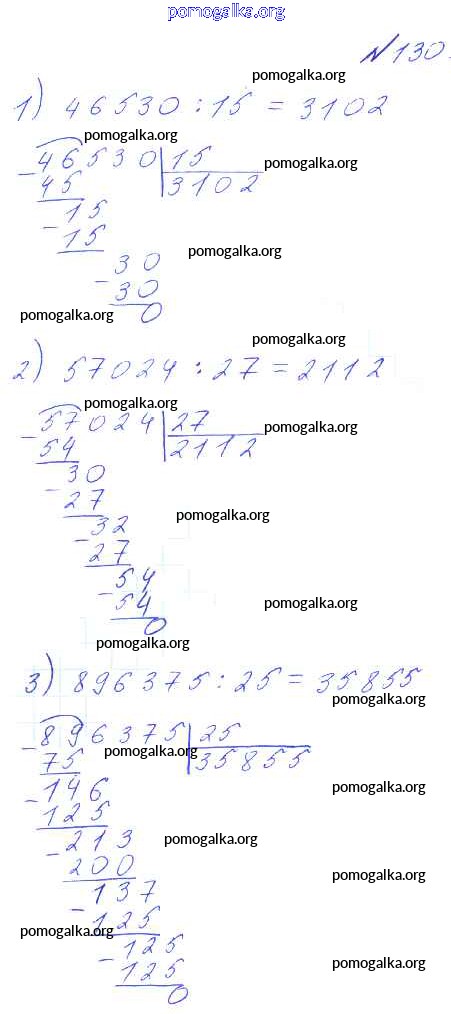 pomogalka.org
№130.
pomogalka.org
1) 46530 : 15 = 3102
pomogalka.org
46530 15 pomogalka.org
45 3102
15
15
pomogalka.org
30
30
pomogalka.org 0
pomogalka.org
2) 57024 : 27 = 2112
pomogalka.org
57024 27 pomogalka.org
54 2112
30
27
pomogalka.org
32
27
54
54 pomogalka.org
0
pomogalka.org
3) 896375 : 25 = 35855
pomogalka.org
896375 25
pomogalka.org
75 35855
146 pomogalka.org
125
213 pomogalka.org
200 pomogalka.org
137
125
pomogalka.org
125
125 pomogalka.org
0